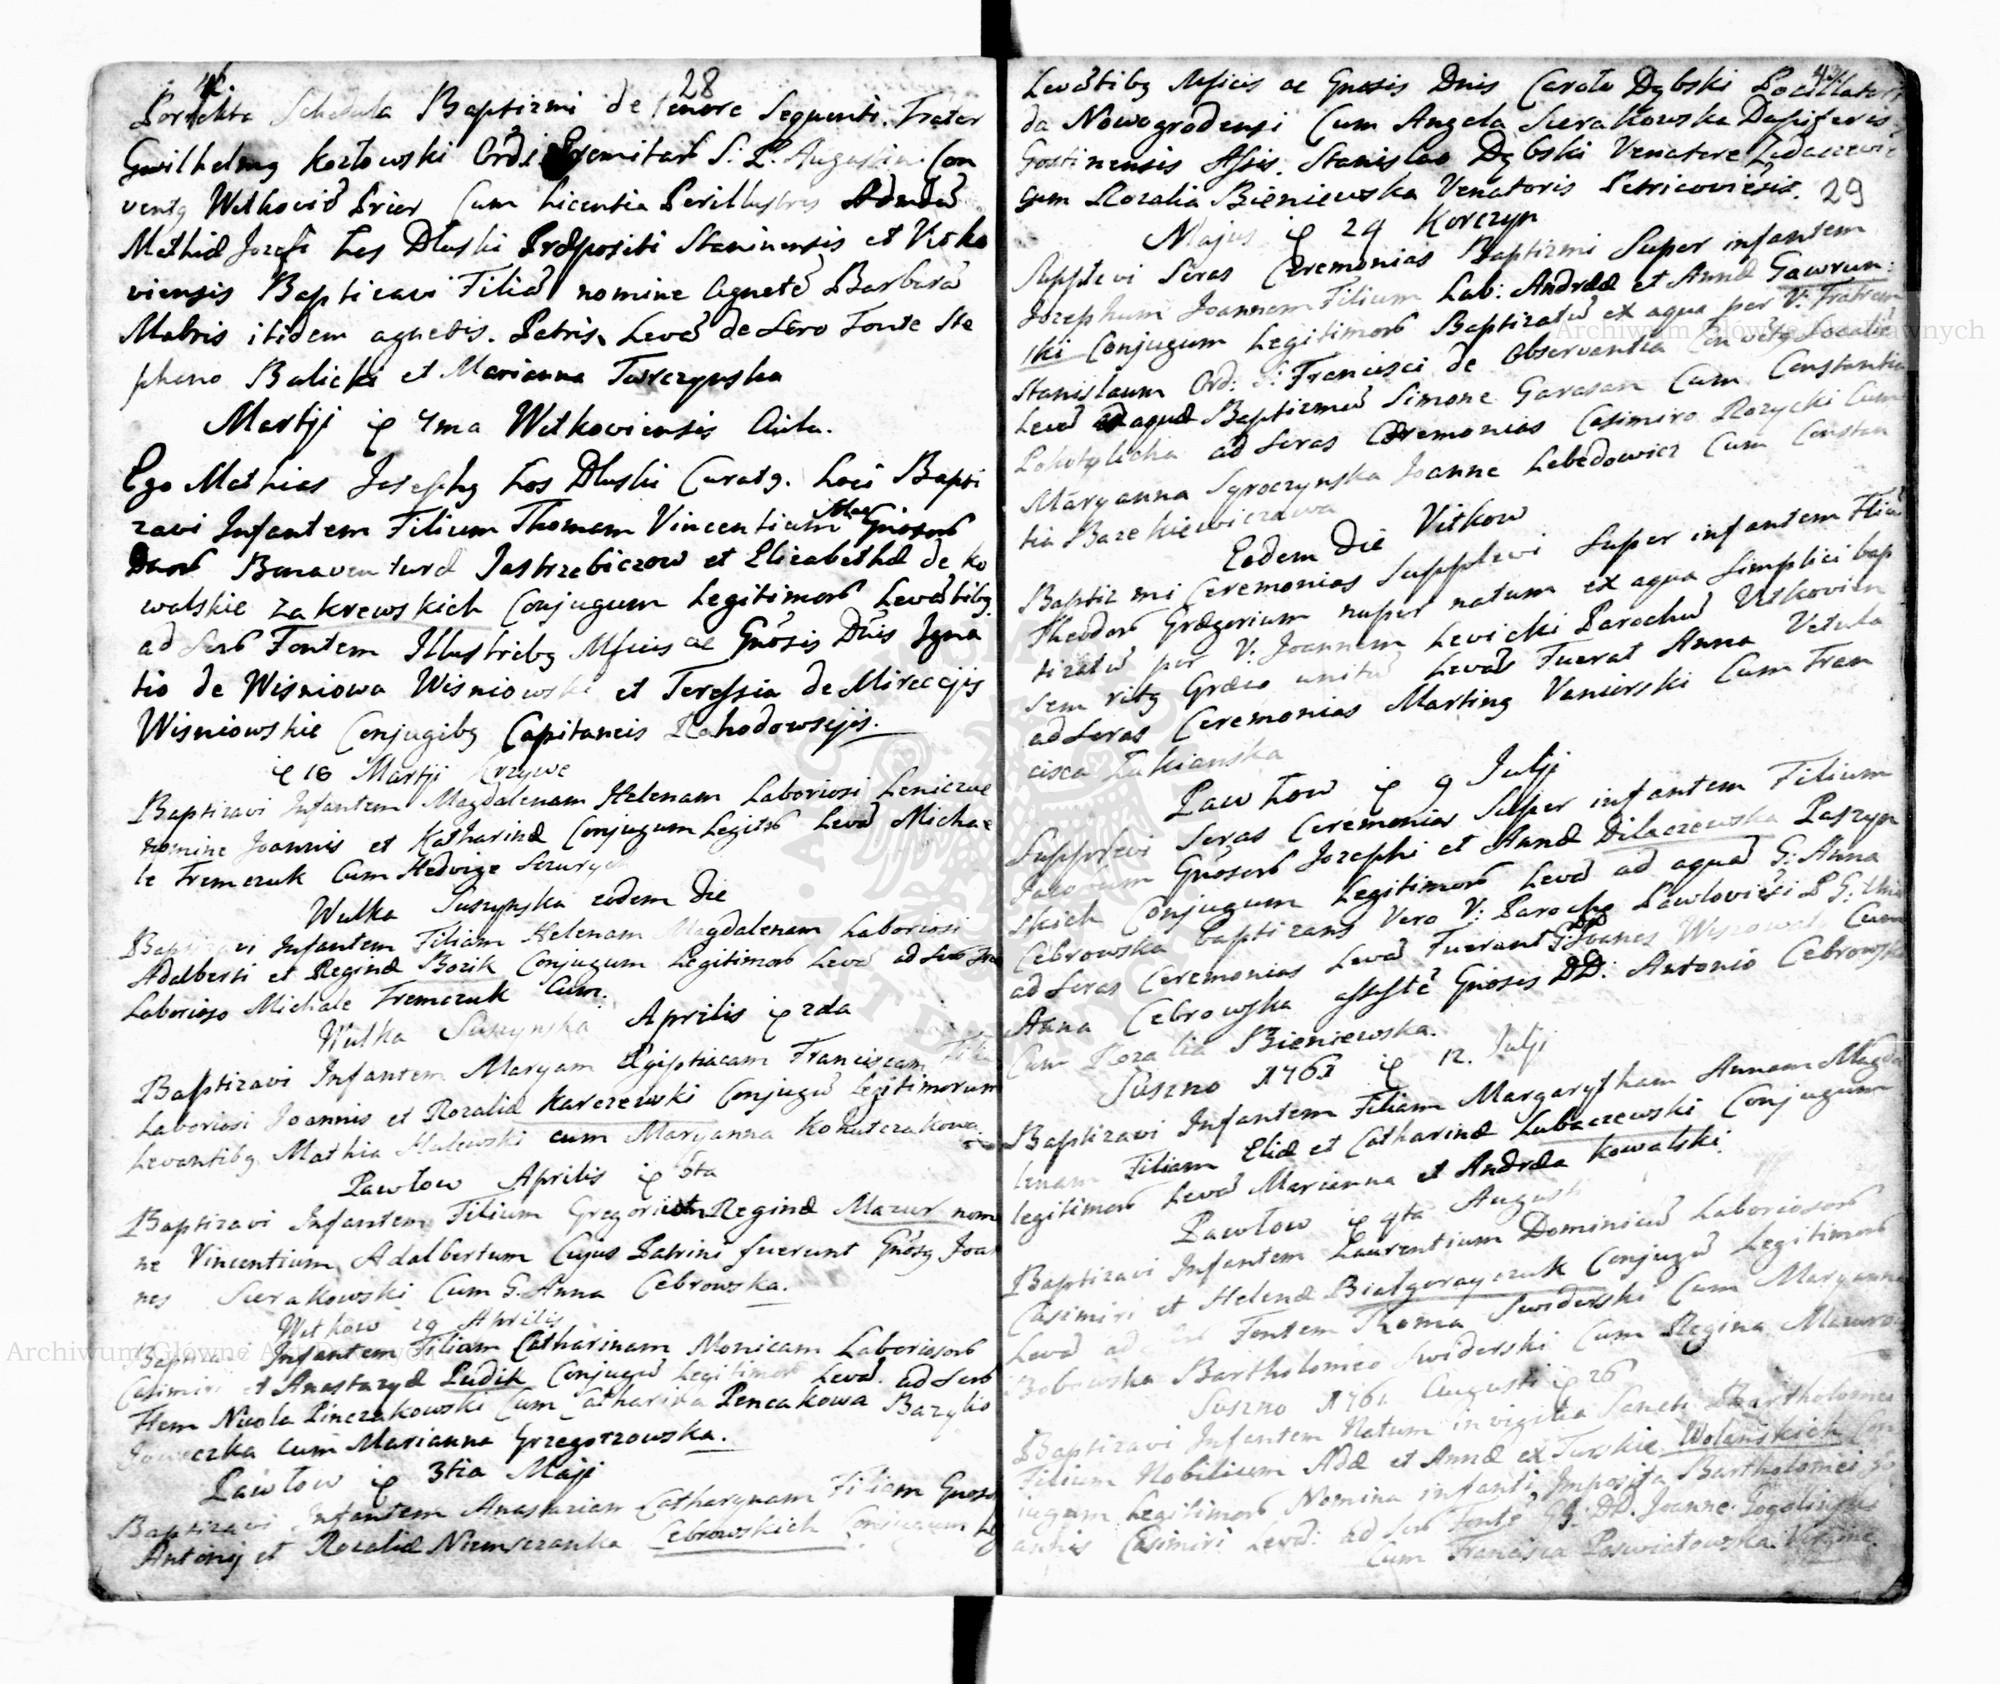 28
Porrekta Schedula Baptizmi de tenore Sequenti. Frater
Gwilhelmg Kozłowski Ordi Eremitar S. P. Augustin. Con
ventg Witkovien Prior Cum Licentia Perillustris Admdu
Mathiæ Jozefi Łos Dłuski Præpositi Staninensis et Vitko
viensis Baptizavi Filia nomine Agnete Barbara
Matris itidem agnetis. Patris, Leva de Sero Fonte Ste
phano Balicki et Marianna Tworczynska
Martji ie 4ma Witkoviensis Aula.
Ego Mathias Josephg Łos Dłuski Curatg. Loci Bapti
zavi Infantem Filium Thomam Vincentium Mag Gnosor
Dnor Bonaventuræ Jastrzebiczow et Elizabethæ de Ko
walskie Zakrewskich Conjugum Legitimor Levatibg
ad Scr Fontem Illustribg Mficis ac Gnosis Dnis Igna
tio de Wisniowa Wisniowski et Teressia de Mireccjis
Wisniowskie Conjugibg Capitaneis Rahodowsejis.
ie 18 Martji Krzywe
Baptizavi Infantem Magdalenam Helenam Laboriosi
nomine Joannis et Katharinæ Conjugum Legitor Leva Micha
le Fremczuk Cum Hedvige
Wulka Suszynska eodem Die
Baptizavi Infantem Filiam Helenam Magdalenam Laboriosi
Adalberti et Reginæ Bozik Conjugum Legitimor Leva ad
Laborioso Michale Fremczuk Cum.
Wulka Suszynska Aprilis ie 2da
Baptizavi Infantem Maryam Egiptiacam Franciscam Filia
Laboriosi Joannis et Rozaliæ Karczewski Conjugu Legitimorum
Levantibg Mathia Malewski cum Maryanna Kohutczakowa
Pawłow Aprilis ie 5ta
Baptizavi Infantem Filium Gregori et Reginæ Mazur nomi
ne Vincentium Adalbertum Cujus Patrini fuerunt Gnosg Joan
nes Sierakowski Cum G. Anna Cebrowska.
Witkow 29 Aprilis
Baptizavi Infantem Filiam Catharinam Monicam Laboriosor
Casimiri et Anastazyæ Pudik Conjugu Legitimor Leva. ad Scr
Ftem Nicola Pinczakowski Cum Catharina Pencakowa Bazylio
cum Marianna Grzegorzowska.
Pawłow ie 3tia Maji
Baptizavi Infantem Anastaziam Catharynam Filiam Gnosor
Antonij et Rozaliæ Niemszanka Cebrowskich Conjugum Leg
Levatibg Mficis ac Gnosis Dnis Carolo Dąbski Pocillatori
da Nowogrodensi Cum Angela Sierakowska Dapiferis
Gostinensis Assis. Stanislao Dąbski Venatore Zydaczewie
Cum Rozalia Bieniewska Venatoris Petricoviesis. 29
Majus ie 24 Korczyn
Supplevi Scras Ceremonias Baptizmi Super infantem
Josephum Joannem Filium Lab: Andreæ et Annæ Gawrun:
ski Conjugum Legitimor Baptizatu ex aqua per V: Fratrem
Stanislaum Ord: S: Francisci de Observantia Conventg
Leva ad aquæ Baptizmu Simone Garasan Cum Constantia
ad Scras Cæremonias Casimiro Rozycki Cum
Maryanna Sgroczynska Joanne Lebedowicz Cum Constan
tia Bazekiewiczowa
Eodem Die Vitkow
Baptizmi Ceremonias Supplevi Super infantem Filiu
Theodor Grægorium nuper natum ex aqua Simplici bap
tizatu per V: Joannem Levicki Parochu Vitkovien
sem ritg Græco unitu Leva Fuerat Anna Vetula
ad Scras Ceremonias Marting Vanierski Cum Fran
cisca Lukianska
Pawłow ie 9 Julji
Supplevi Scras Ceremonias Super infantem Filium
Jacobum Gnosor Josephi et Annæ Dilaczewska Paszyn
skich Conjugum Legitimor Leva ad aqua G: Anna
Cebrowska baptizans Vero V: Parocho Pawlovieci
ad Scras Ceremonias Leva Fuerant G: Joanes Cum
Anna Cebrowska assiste Gnosis DD: Antonio Cebrowski
Cum Rozalia Bieniewska.
Suszno 1761 ie 12. Julji
Baptizavi Infantem Filiam Margarytham Annam Magda
lenam Filiam Eliæ et Catharinæ Lubaczewski Conjugum
legitimor Leva Marianna et Andræa Kowalski.
Pawłow ie 9ta Augusti
Baptizavi Infantem Laurentium Dominicu Laboriosor
Casimiri et Helenæ Białgorayczuk Conjugu Legitimor
Leva ad Scr Fontem Thoma Swiderski Cum Maryanna
Bobrowska Bartholomeo Swiderski Cum Regina Mazurow
Suszno 1761 Augusti ie 26
Baptizavi Infantem Natum in vigilia Sancti Bartholomei
Filium Nobilium Adæ et Annæ ex Turskie Wolanskich Con
jugum Legitimor Nomina infanti Imposita Bartholomei
Casimiri Leva: ad Scr Fonte GG: DD. Joanne
Cum Francisca Poswiatowska Virgine.
Archiwum Główne Akt Dawnych
Archiwum Główne Akt Dawnych